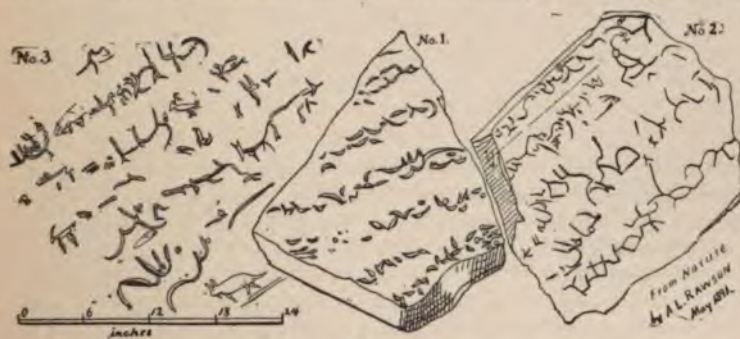 No. 3.
No. 1.
No 2.
0 6 12 18 24
inches
From Nature
by A L. RAWSON
May 1891.